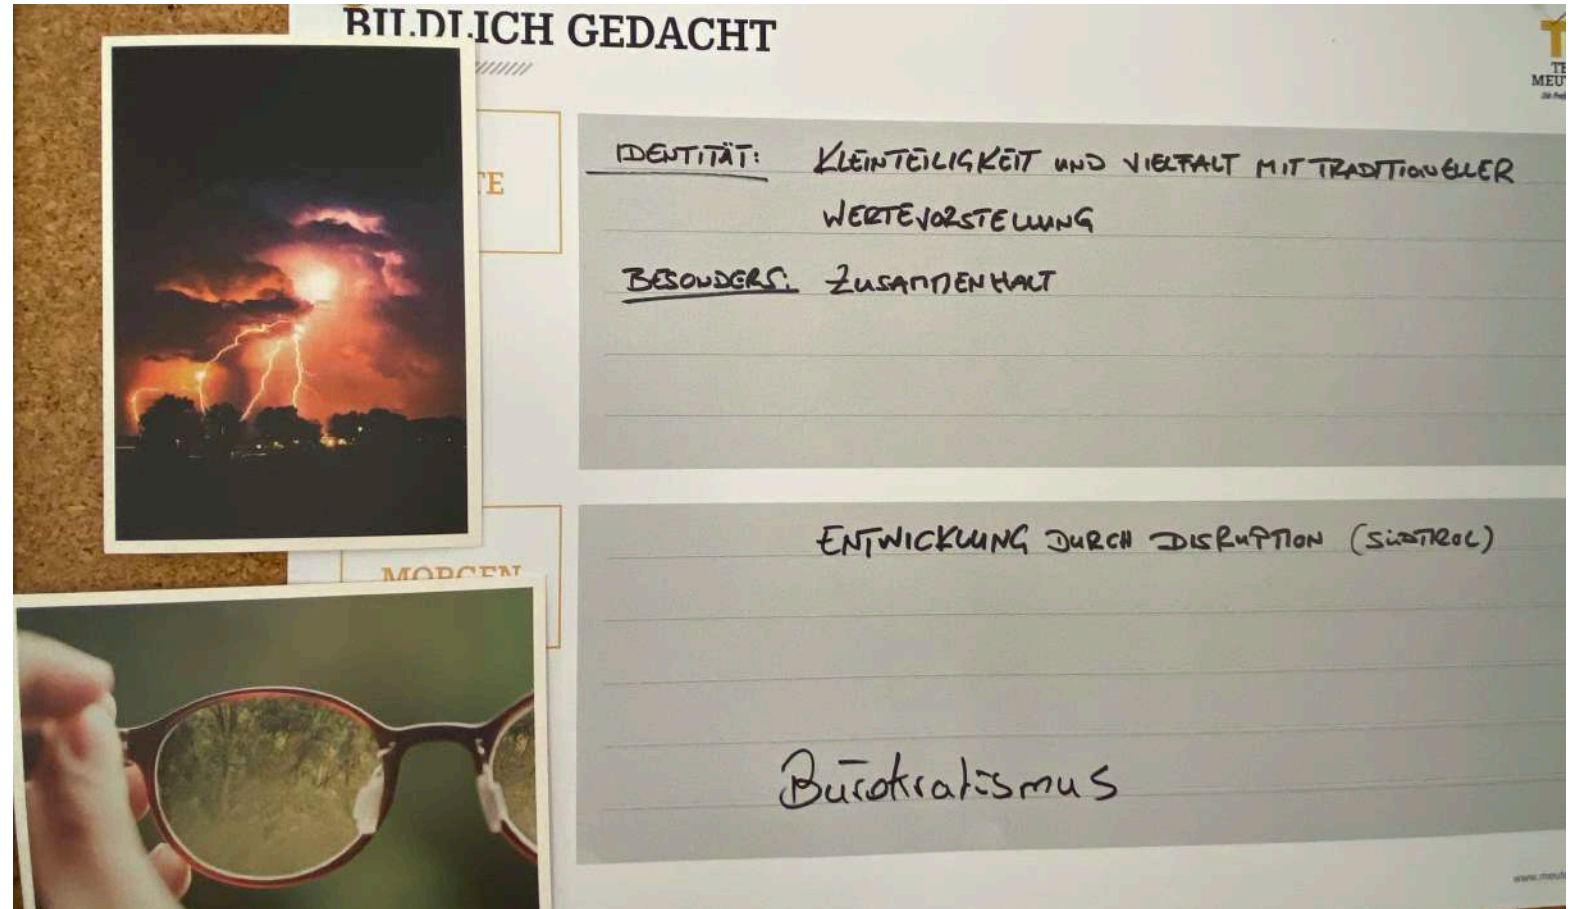 BILDLICH GEDACHT
TE
IDENTITÄT: KLEINTEILIGKEIT UND VIELFALT MIT TRADITIONELLER
WERTEVORSTELLUNG
BESONDERS: ZUSAMMENHALT
MORGEN
ENTWICKLUNG DURCH DISRUPTION (SÜDTIROL)
Bürokratismus
TE
MEU
www.meut